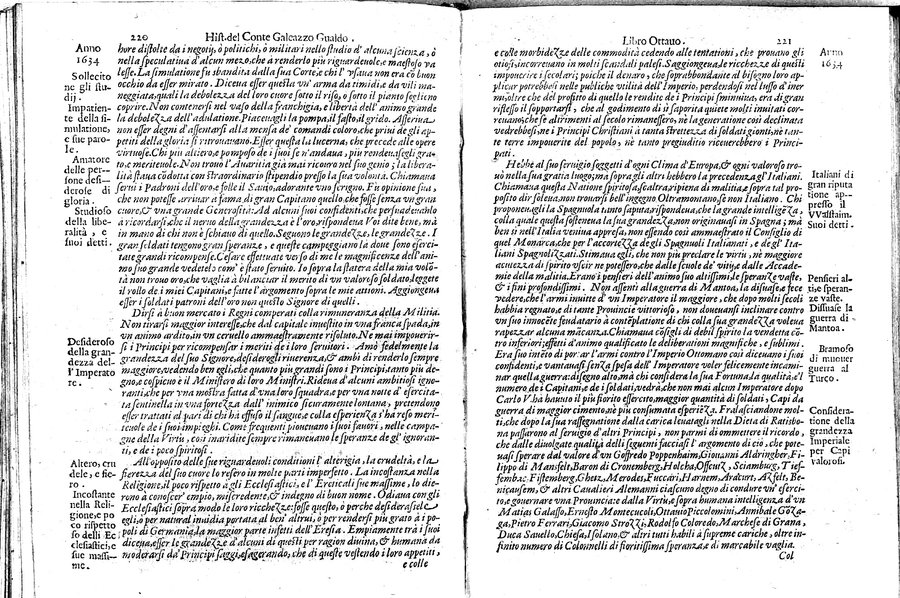 220 Hist. del Conte Galeazzo Gualdo.
Anno
1634
Sollecito
ne gli stu
dij.
Impatiente
della si
mulatione,
e sue paro
le.
Amatore
delle per
sone desi=
derose di
gloria.
Studioso
della libe
ralità, e
suoi detti.
Desideroso
della gran
dezza del=
l'Imperato
re.
Altero, cru
dele, e fie=
ro.
Incostante
nella Reli
gione, e po
co rispetto
so delli Ec
clesiastici, e
sue massi=
me.
hore distolte da i negotij, ò politici, ò militari nello studio d'alcuna scienza, ò
nella speculatiua d'alcun mezo, che à renderlo più riguardeuole, e maestoso va
lesse. La simulatione fù sbandita dalla sua Corte, e chi l'vsaua non era cõ buon
occhio da esser mirato. Diceua esser questa vn' arma da timidi, e da vili ma=
neggiata, quali la debolezza del loro cuore sotto il riso, ò sotto il pianto sogliono
coprire. Non contenersi nel vaso della franchigia, e libertà dell'animo grande
la debolezza dell'adulatione. Piaceuagli la pompa, il fasto, il grido. Asseriua
non esser degni d'assentarsi alla mensa de' comandi coloro, che priui de gli ap=
petiti della gloria si ritrouauano. Esser questa la lucerna, che precede alle opere
virtuose. Chi più altiero, e pomposo de i suoi se n'andaua, più rendeuasegli gra=
to, e meriteuole. Non trouò l'Auaritia già mai ricouro nel suo genio; la libera=
lità staua cõdotta con straordinario stipendio presso la sua volontà. Chiamaua
serui i Padroni dell'oro, e folle il Sauio, adorante vno scrigno. Fù opinione sua,
che non potesse arriuar a fama di gran Capitano quello, che fosse senza vn gran
cuore, & vna grande Generosità: Ad alcuni suoi confidenti, che persuadeuanlo
à ricordarsi, che il neruo della grandezza è l'oro, rispondeua Voi dite bene, mà
in mano di chi non è schiauo di quello. Seguono le grandezze, le grandezze. I
gran soldati tengono gran speranze, e queste campeggiano la doue sono eserci=
tate grandi ricompense. Cesare effettuate verso di me le magnificenze dell'ani
mo suo grande vedete ò com' è stato seruito. Io sopra la statera della mia volõ
tà non trouo oro, che vaglia à bilanciar il merito di vn valoroso soldato, leggete
il rollo de i miei Capitani, e fatte l'argomento sopra le mie attioni. Aggiongeua
esser i soldati patroni dell'oro non questo Signore di quelli.
Dirsi à buon mercato i Regni comperati colla rimuneranza della Militia.
Non tirarsi maggior interesse, che dal capitale inuestito in vna franca spada, in
vn animo ardito, in vn ceruello ammaestramente risoluto. Ne mai impouerir=
si i Principi per ricompensar i meriti de i loro seruitori. Amò fedelmente la
grandezza del suo Signore, desiderogli riuerenza, & ambì di renderlo sempre
maggiore, vedendo ben egli, che quanto più grandi sono i Principi, tanto più de=
gno, e cospicuo è il Ministero di loro Ministri. Rideua d'alcuni ambitiosi igno=
ranti, che per vna mostra fatta d'vna loro squadra, e per vna notte d'esercita=
ta sentinella in vna fortezza dall'inimico sicuramente lontana, pretendono
esser trattati al pari di chi hà effuso il sangue, e colla esperienza s'ha reso meri=
teuole de i suoi impieghi. Come frequenti piouciano i suoi fauori, nelle campa=
gne della Virtù, così inaridite sempre rimaneuano le speranze de gl'ignoran=
ti, e de i poco spiritosi.
All'opposito delle sue riguardeuoli conditioni l'alterigia, la crudeltà, e la
fierezza del suo cuore lo resero in molte parti imperfetto. La incostanza nella
Religione, il poco rispetto à gli Ecclesiastici, e l'Ereticali sue massime, lo die=
rono à conoscer' empio, miscredente, & indegno di buon nome. Odiaua con gli
Ecclesiastici sopra modo le loro ricchezze: fosse questo, ò perche desiderassele
egli, ò per natural inuidia portata al ben' altrui, ò per rendersi più grato à i po=
poli di Germania, la maggior parte infetti dell'Eresia. Empiamente trà i suoi
diceua, esser le grandezze d'alcuni di questi per ragion diuina, & humana da
moderarsi da' Principi saggi, esagerando, che di queste vestendo i loro appetiti,
e colle
Libro Ottauo. 221
Anno
1634
Italiani di
gran riputa
tione ap=
presso il
VVasftain.
Suoi detti.
Pensieri al=
ti, e speran=
ze vaste.
Dissuade la
guerra di
Mantoa.
Bramoso
di muouer
guerra al
Turco.
Considera=
tione della
grandezza
Imperiale
per Capi
valorosi.
e colle morbidezze delle commodità cedendo alle tentationi, che prouano gli
otiosi, incorreuano in molti scandali palesi. Saggiongeua, le ricchezze di questi
impouerire i secolari; poiche il denaro, che soprabbondante al bisogno loro ap=
plicar potrebbesi nelle publiche vtilità dell'Imperio, perdendosi nel lusso d'iner
mi, oltre che del profitto di quello le rendite de i Principi sminuiua, era di gran
riflesso il sopportarsi, che al godimento di sì saporita quiete molti inuitati cor=
reuano; che se altrimenti al secolo rimanessero, nè la generatione così declinata
vedrebbesi, ne i Principi Christiani à tanta strettezza di soldati gionti, nè tan=
te terre impouerite del popolo, nè tanto pregiuditio riceuerebbero i Princi=
pati.
Hebbe al suo seruigio soggetti d'ogni Clima d'Europa, & ogni valoroso tro=
uò nella sua gratia luogo, ma sopra gli altri hebbero la precedenza gl'Italiani.
Chiamaua questa Natione spiritosa, scaltra, ripiena di malitia, e sopra tal pro=
posito dir soleua, non trouarsi bell'ingegno Oltramontano, se non Italiano. Chi
proponeuagli la Spagnuola tanto sapeua, rispondeua, che la grande intelligenza,
sulla quale fondauasi questa sua grandezza, non originauasi in Spagna; ma
ben sì nell'Italia veniua appresa, non essendo così ammaestrato il Consiglio di
quel Monarca, che per l'accortezza degli Spagnuoli Italianati, e degl'Ita=
liani Spagnolizzati. Stimaua egli, che non più preclare le virtù, nè maggiore
acutezza di spirito vscir ne potessero, che dalle scuole de' vitij, e dalle Accade=
mie della malitia. Erano i pensieri dell'animo suo altissimi, le speranze vaste,
& i fini profondissimi. Non assentì alla guerra di Mantoa, la disuase, e fece
vedere, che l'armi inuitte d'vn Imperatore il maggiore, che dopo molti secoli
habbia regnato, e di tante Prouincie vittorioso, non doueuansi inclinare contro
vn suo innocẽte feudatario à contẽplatione di chi colla sua grandezza voleua
rapezzar alcuna mancanza. Chiamaua cõsegli di debil spirito la vendetta cõ
tro inferiori; effetti d'animo qualificato le deliberationi magnifiche, e sublimi.
Era suo intẽto di portar l'armi contro l'Imperio Ottomano così diceuano i suoi
confidenti, e vantauasi senza spesa dell'Imperatore voler felicemente incami=
nar quella guerra: disegno alto, mà chi considera la sua Fortuna, la qualità, e'l
numero de i Capitani, e de i soldati, vedrà, che non mai alcun Imperatore dopo
Carlo V. hà hauuto il più fiorito essercito, maggior quantità di soldati, Capi da
guerra di maggior cimento, nè più consumata esperiẽza. Fralasciandone mol=
ti, che dopo la sua rassegnatione dalla carica leuatagli nella Dieta di Ratisbo=
na passarono al seruigio d'altri Principi, non parmi di ommettere il ricordo,
che dalle diuolgate qualità delli seguenti facciasi l'argomento di ciò, che pote=
uasi sperare dal valore d'vn Goffredo Poppenhaim, Giouanni Aldringher, Fi=
lippo di Mansfelt, Baron di Cronemberg, Holcha, Offeuz, Sciamburg, Tief=
fembac, Fistemberg, Ghetz, Merodes, Fuccari, Harnem, Araturt, Azfelt, Be=
nicausem, & altri Cauallieri Alemanni ciascuno degno di condure vn' eserci=
to, e gouernare vna Prouincia: e dalla Virtù, e sopra humana intelligenza d'vn
Matias Galasso, Ernesto Montecucoli, Ottauio Piccolomini, Annibale Gõza=
ga, Pietro Ferrari, Giacomo Strozzi, Rodolfo Coloredo, Marchese di Grana,
Duca Sauello, Chiesa, Isolano, & altri tutti habili à supreme cariche, oltre in=
finito numero di Colonnelli di fioritissima speranza, e di marcabile vaglia.
Col